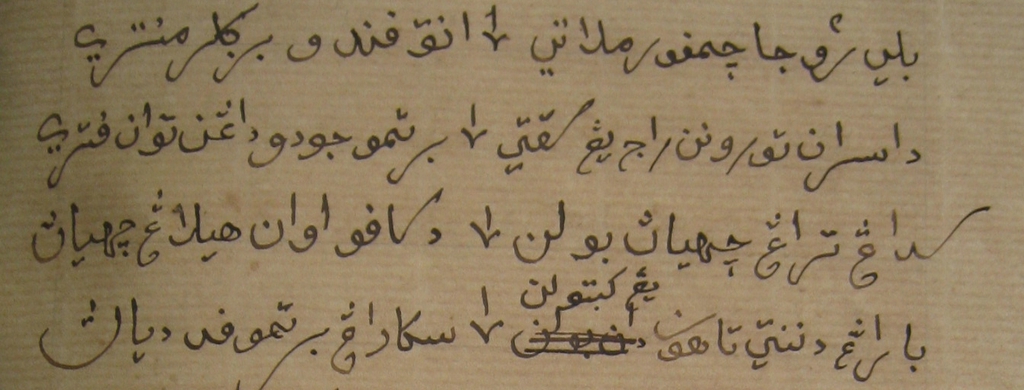 بلي سروجا چمفور ملاتي انق فندو برکلر منتري
داسران تورونن راج يڠ سقتي برتمو جودو داڠن توان فتري
سداڠ تراڠ چهياڽ بولن دکافو اوان هيلاڠ چهياڽ
باراڠ دننتي تاهون يڠ کبتولن سکاراڠ برتمو فد دياڽ